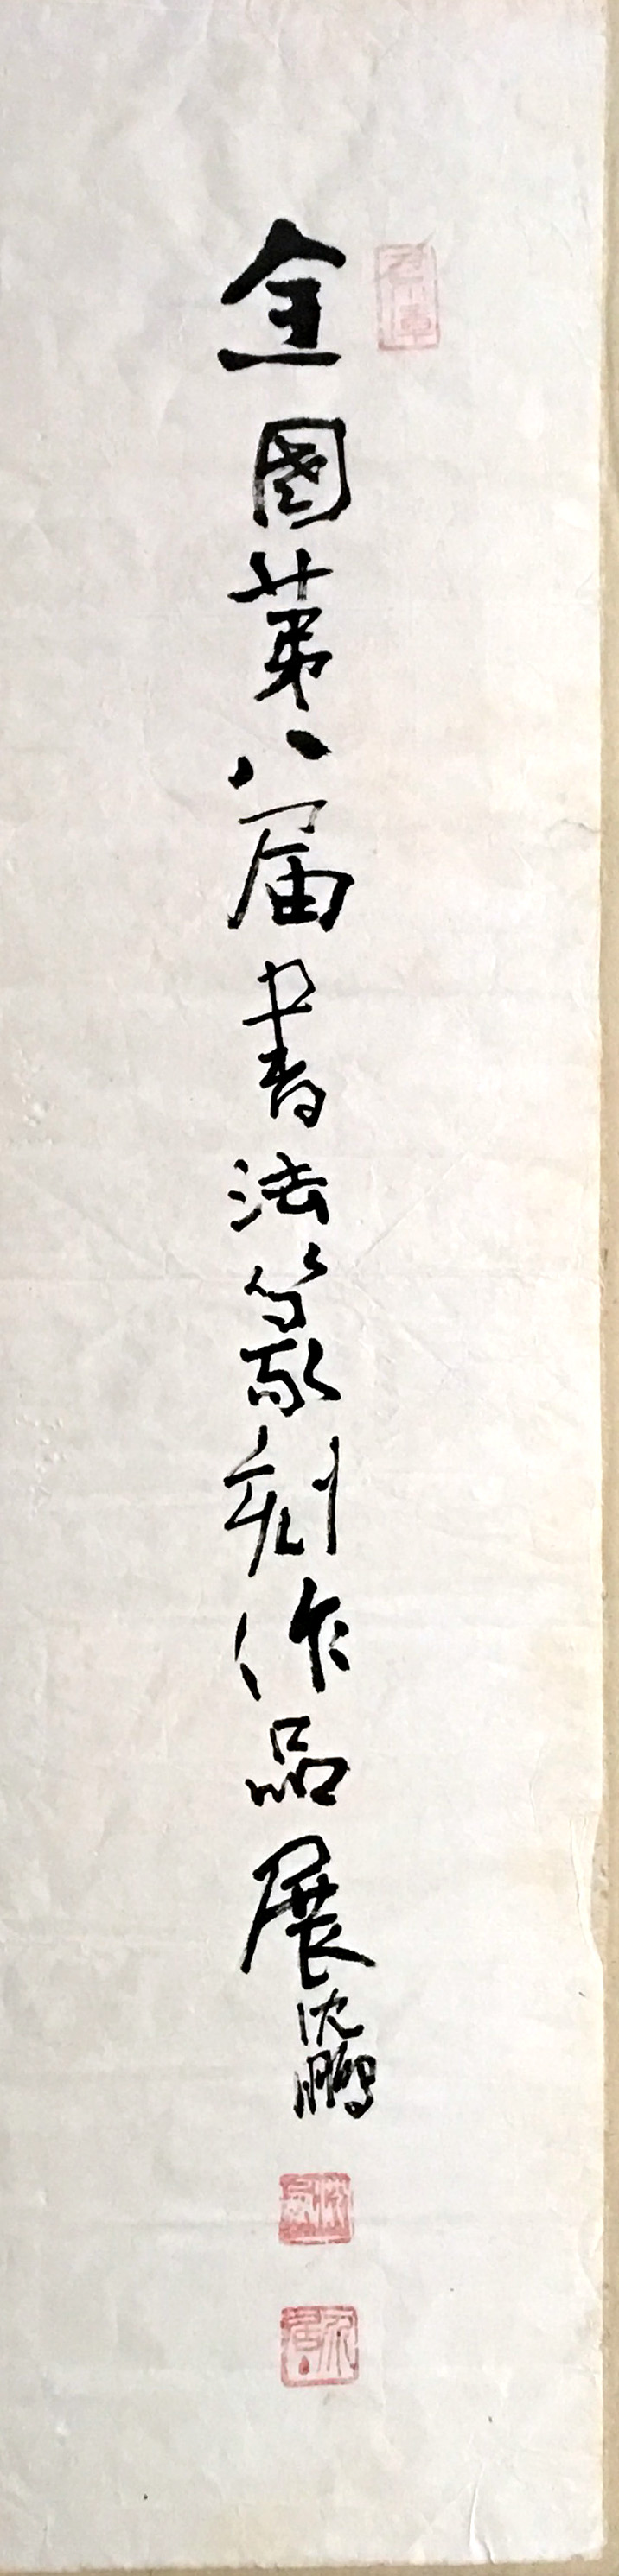 全國第八届書法篆刻作品展
沈鵬